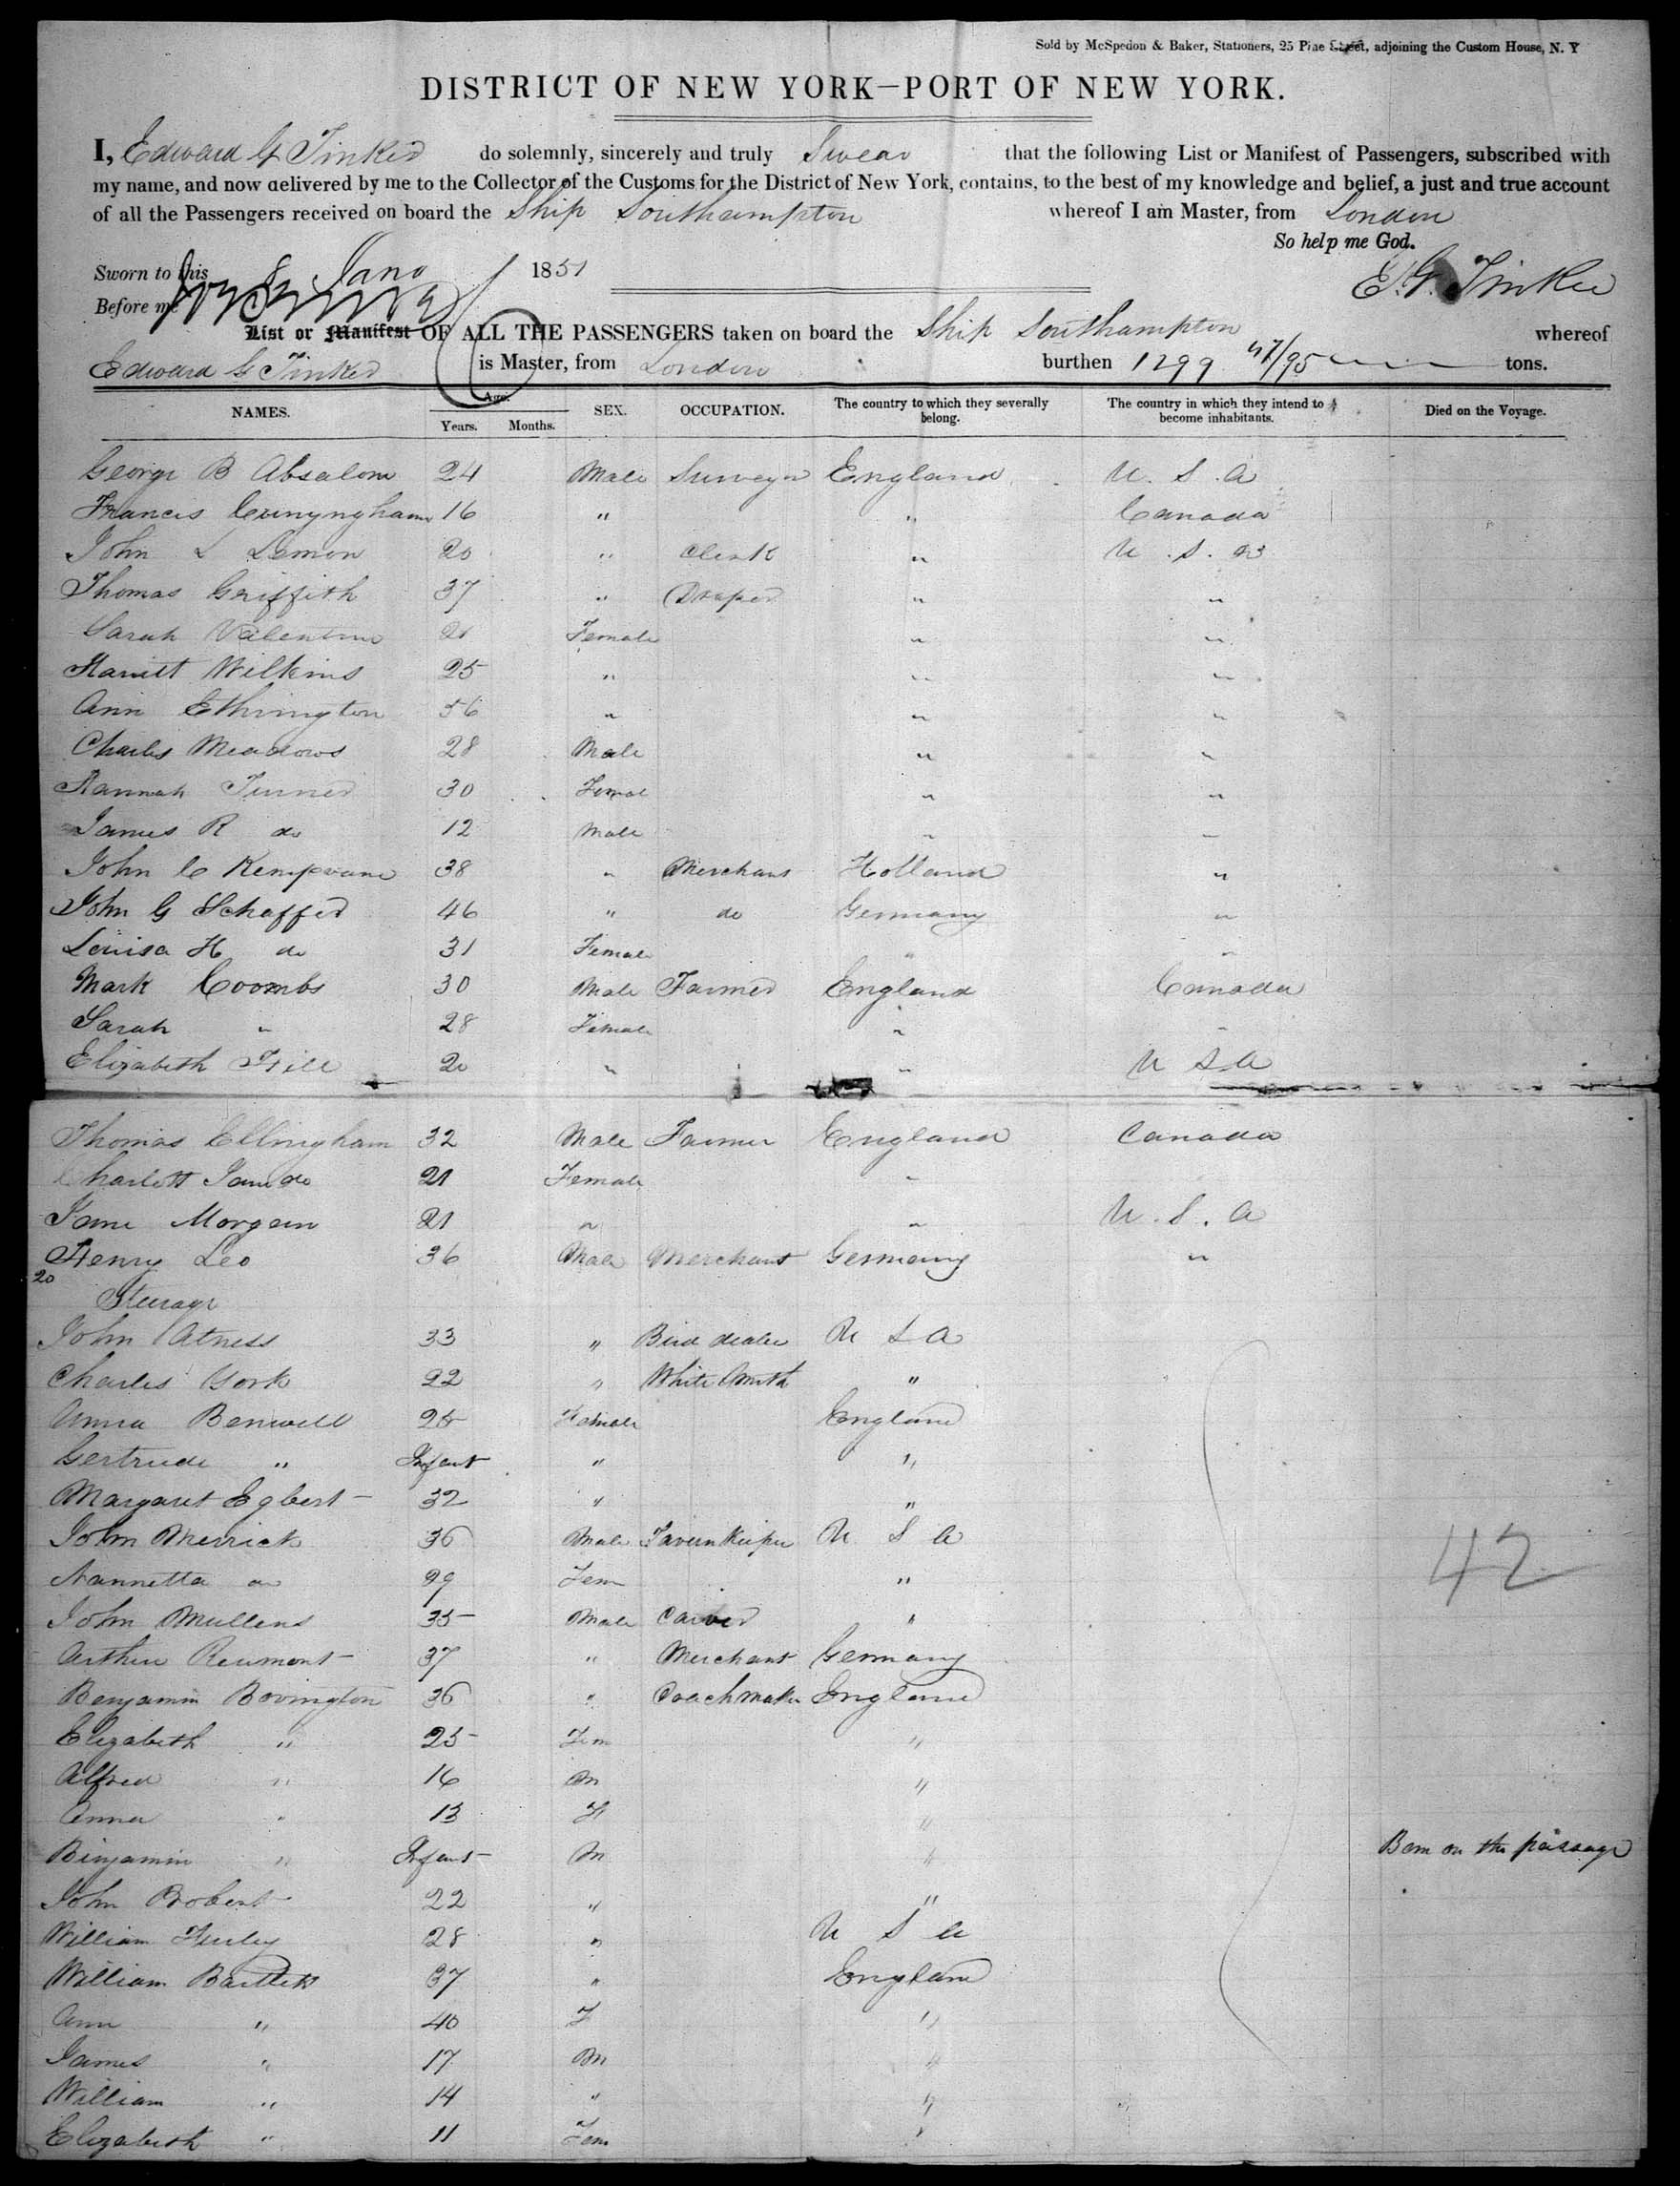 Sold by McSpedon & Baker, Stationers, 25 Pine Street, adjoining the Custom House, N. Y
DISTRICT OF NEW YORK—PORT OF NEW YORK.
I, Edward G Tinker do solemnly, sincerely and truly Swear that the following List or Manifest of Passengers, subscribed with
my name, and now delivered by me to the Collector of the Customs for the District of New York, contains, to the best of my knowledge and belief, a just and true account
of all the Passengers received on board the Ship Southampton whereof I am Master, from London
So help me God.
Sworn to this 8 Jany 1851
E. G. Tinker
Before me
List or Manifest OF ALL THE PASSENGERS taken on board the Ship Southampton whereof
Edward G Tinker is Master, from London burthen 1299 47/95 tons.
NAMES. Age. Years. Months. SEX. OCCUPATION. The country to which they severally belong. The country in which they intend to become inhabitants. Died on the Voyage.
George B Absalom 24 Male Surveyor England U. S. A
Francis Cunyngham 16 " " Canada
John L Lemon 20 " Clerk " U. S. A
Thomas Griffith 37 " Draper " "
Sarah Valentine Female " "
Harriett Wilkins 25 " " "
Ann Ethrington 56 " " "
Charles Meadows 28 Male " "
Hannah Turner 30 Femal " "
James R do 12 Male " "
John C Kempvane 38 " Merchant Holland "
John G Schaffer 46 " do Germany "
Louisa H do 31 Female " "
Mark Coombs 30 Male Farmer England Canada
Sarah " 28 Female " "
Elizabeth Hill 20 " " U S A
Thomas Ellingham 32 Male Farmer England Canada
Charlott Jane do 21 Female "
Jane Morgan 21 " " U. S. A
Henry Leo 36 Male Merchant Germany "
20
Steerage
John Atness 33 " Bird dealer U S A
Charles York 22 " White Smith "
Anna Benwell 25 Female England
Gertrude " Infant " "
Margaret Egbert 32 " "
John Merrick 36 Male Tavern Keeper U S A
Nannetta do 29 Fem "
42
John Mullens 35 Male Carver "
Arthur Reumont 37 " Merchant Germany
Benjamin Bovington 36 " Coachmaker England
Elizabeth " 25 Fem "
Alfred " 16 M "
Anna " 13 F "
Binjamin " Infant M " Born on the passage
John Probert 22 " "
William 28 " U S A
William Bartlett 37 " England
Ann " 40 F "
James " 17 M "
William " 14 " "
Elizabeth " 11 Fem "